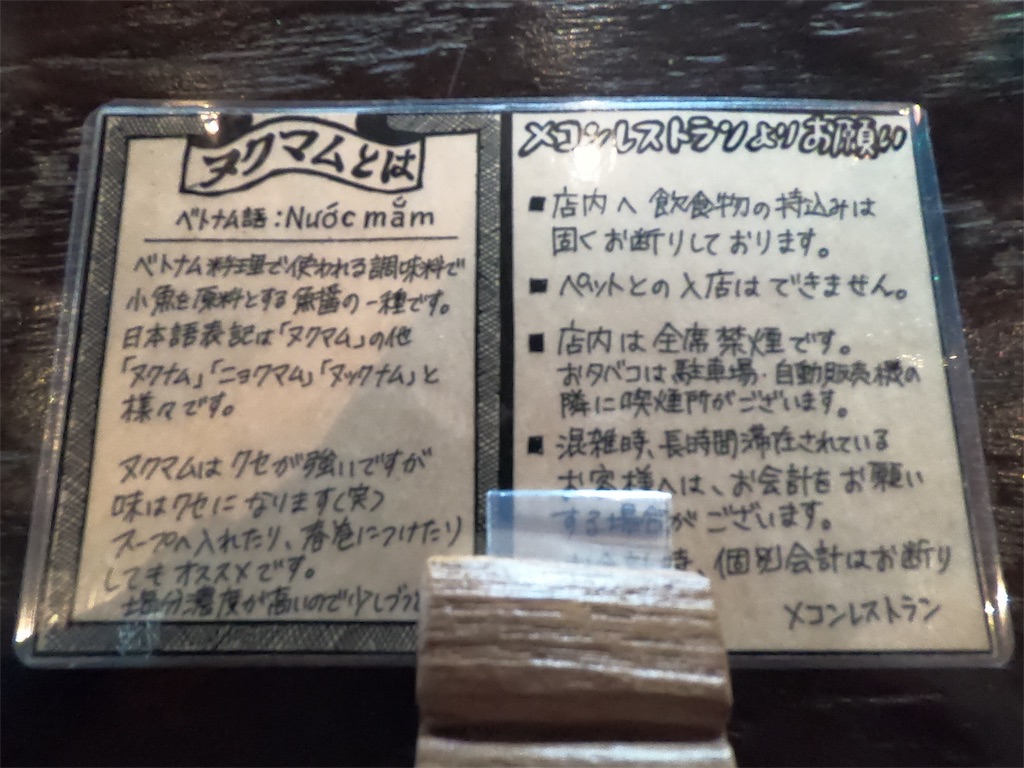 ヌクマムとは
ベトナム語:Nước mắm
ベトナム料理で使われる調味料で
小魚を原料とする魚醤の一種です。
日本語表記は「ヌクマム」の他
「ヌクナム」「ニョクマム」「ヌックナム」と
様々です。
ヌクマムはクセが強いですが
味はクセになります(笑)
スープへ入れたり、春巻につけたり
してもオススメです。
塩分濃度が高いので少しづつ
メコンレストランよりお願い
■店内へ飲食物の持込みは
固くお断りしております。
■ペットとの入店はできません。
■店内は全席禁煙です。
おタバコは駐車場・自動販売機の
隣に喫煙所がございます。
■混雑時、長時間滞在されている
お客様へは、お会計をお願い
する場合がございます。
時、個別会計はお断り
メコンレストラン